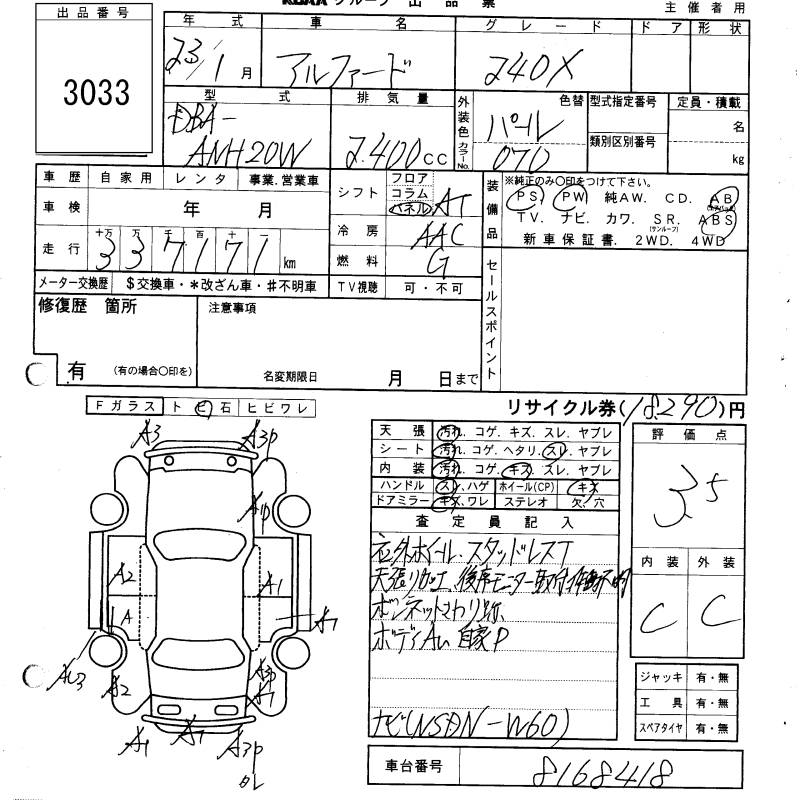 グループ 出品票
主催者用
出品番号
3033
年式 車名 グレード ドア 形状
23/1月 アルファード 240X
型式 排気量 外装色 カラーNo. 色替 型式指定番号 定員・積載
DBA- パール 名
ANH20W 2.400cc 070 類別区別番号 kg
車歴 自家用 レンタ 事業.営業車
車検 年 月
走行 十万 万 千 百 十 一
337171 km
メーター交換歴 $交換車・*改ざん車・#不明車
シフト フロア コラム パネル AT
冷房 AAC
燃料 G
TV視聴 可・不可
装備品 ※純正のみ〇印をつけて下さい。
PS. PW. 純AW. CD. AB
TV. ナビ. カワ. SR. ABS
(サンルーフ)
新車保証書. 2WD. 4WD
修復歴 箇所
有 (有の場合〇印を)
注意事項
名変期限日 月 日まで
セールスポイント
リサイクル券(18.290)円
Fガラス トビ石 ヒビワレ
天張 汚れ. コゲ. キズ. スレ. ヤブレ
シート 汚れ. コゲ. ヘタリ. スレ. ヤブレ
内装 汚れ. コゲ. キズ. スレ. ヤブレ
ハンドル スレ. ハゲ ホイール(CP) キズ
ドアミラー キズ. ワレ ステレオ 欠. 穴
評価点
3.5
内装 外装
C C
査定員記入
社外ホイール.スタッドレスT
天張り加工 後席モニター取付 作動不明
ボンネットマカリ跡
ボディAu 自家P
ナビ(NSDN-W60)
A3 A3P
A1P
A2 A1
A A1
AU3 A2 A3P
A1
A1 A1 A3P
ジャッキ 有・無
工具 有・無
スペアタイヤ 有・無
車台番号 8168418